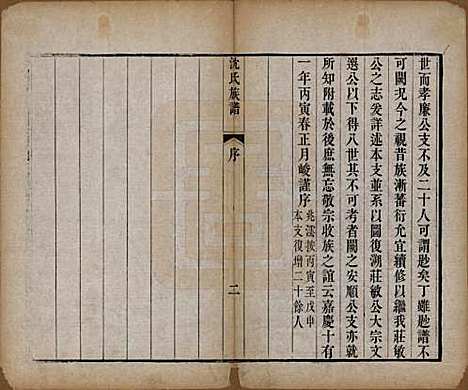 世而孝廉公支不及二十人可謂尠矣丁雖尠譜不
可闕況今之視昔族漸蕃衍尤宜續修以繼我莊敏
公之志爰詳述本支並系以圖復溯莊敏公大宗文
選公以下得八世其不可考者闕之安順公支亦就
所知附載於後庶無忘敬宗收族之誼云嘉慶十有
一年丙寅春正月峻謹序
兆澐按丙寅至戊申
本支復增二十餘人
沈氏族譜
序
二